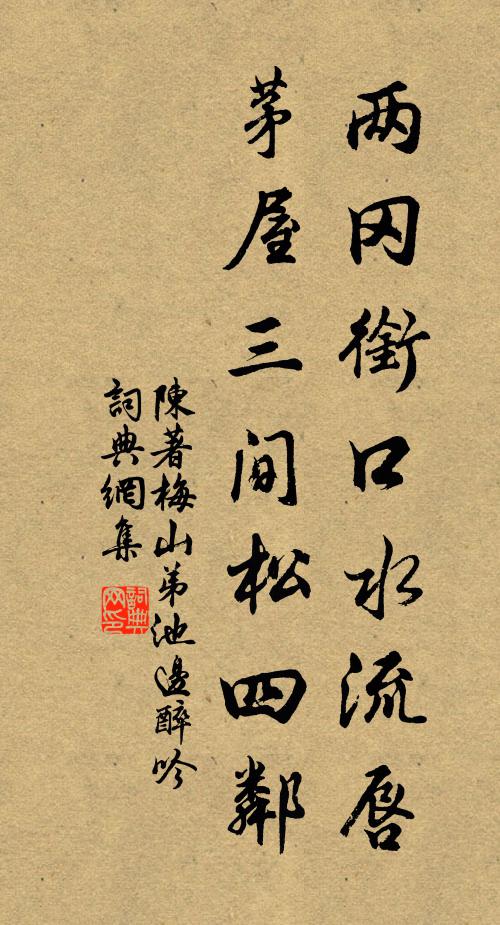 两冈銜口水流唇
茅屋三间松四鄰
陳著梅山弟池邊醉吟
詞典網集
詞典网印